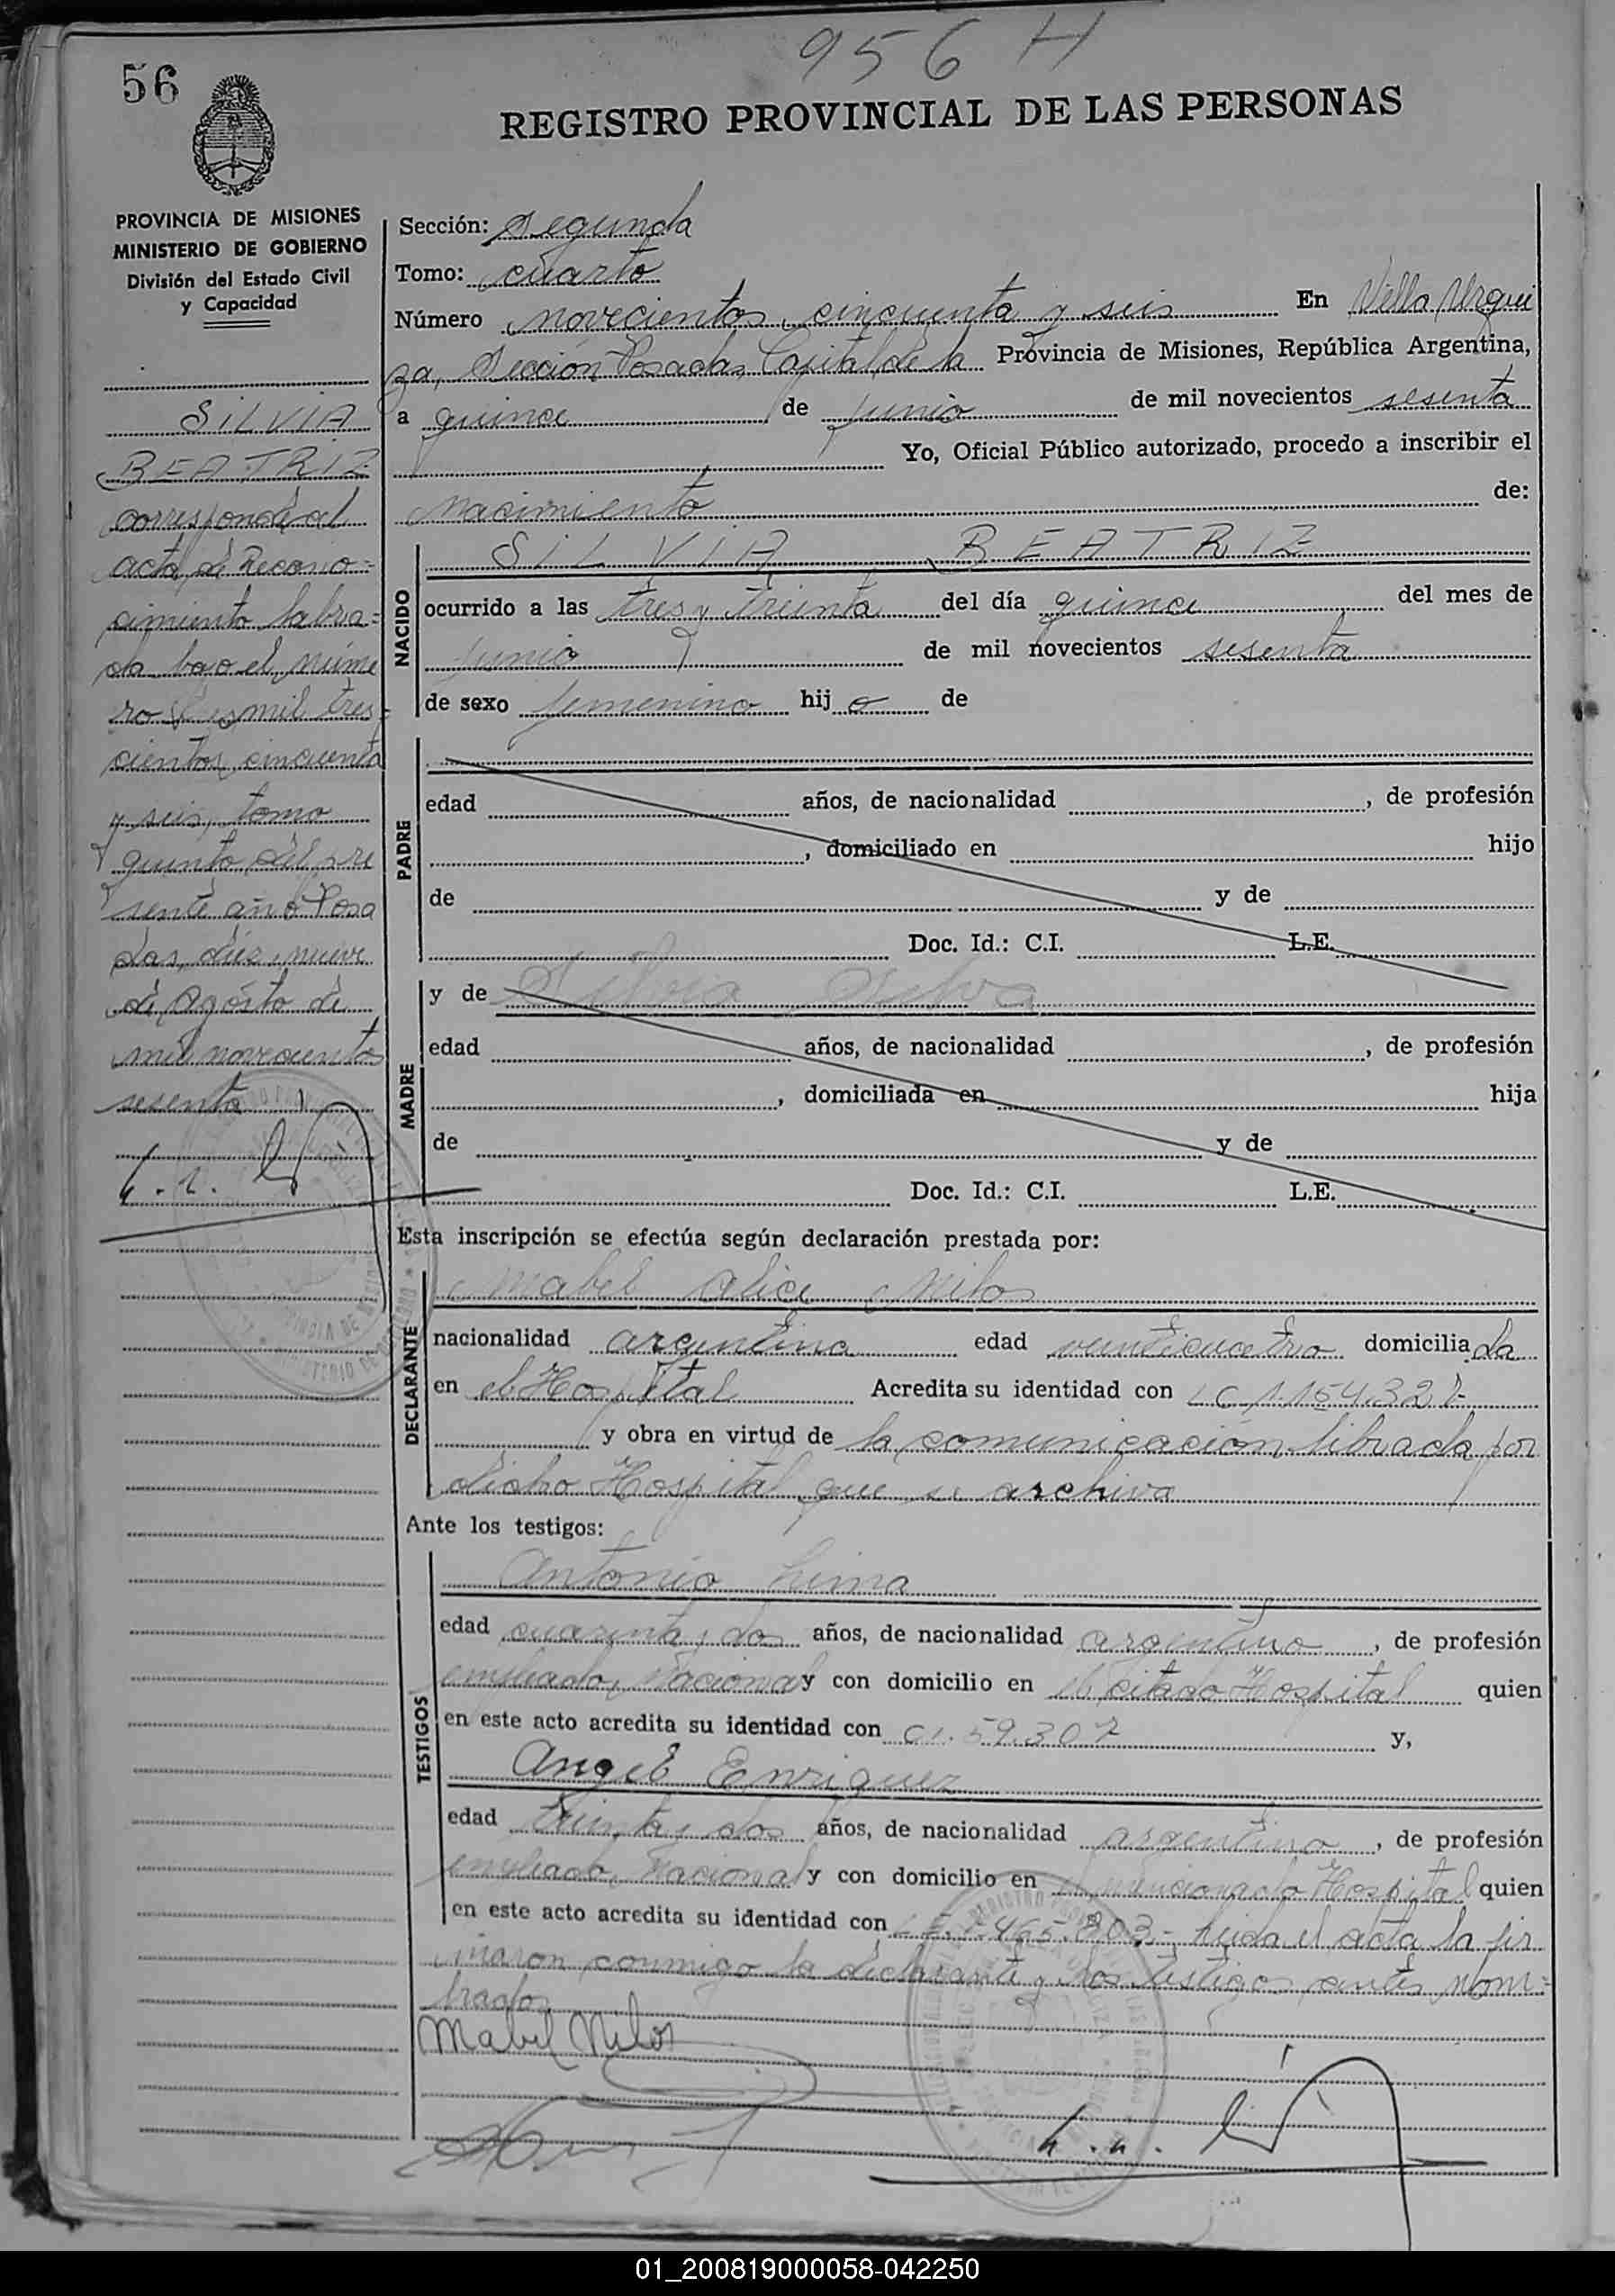 956 H
56
REGISTRO PROVINCIAL DE LAS PERSONAS
PROVINCIA DE MISIONES
MINISTERIO DE GOBIERNO
División del Estado Civil
y Capacidad
SILVIA
BEATRIZ
corresponde al
acta de Recono=
cimiento labra=
da bajo el núme
ro dos mil tres
cientos cincuenta
y seis, tomo
quinto del pre
sente año Posa
das, diez y nueve
de Agosto de
mil novecientos
sesenta
Sección: Segunda
Tomo: cuarto
Número novecientos cincuenta y seis En Villa Urqui
za, Sección Posadas, Capital de la Provincia de Misiones, República Argentina,
a quince de junio de mil novecientos sesenta
Yo, Oficial Público autorizado, procedo a inscribir el
nacimiento de:
NACIDO
SILVIA BEATRIZ
ocurrido a las tres y treinta del día quince del mes de
junio de mil novecientos sesenta
de sexo femenino hij a de
PADRE
edad años, de nacionalidad , de profesión
, domiciliado en hijo
de y de
Doc. Id.: C.I. L.E.
MADRE
y de Silvia Silva
edad años, de nacionalidad , de profesión
, domiciliada en hija
de y de
Doc. Id.: C.I. L.E.
Esta inscripción se efectúa según declaración prestada por:
DECLARANTE
Mabel Alice Milos
nacionalidad argentina edad veinticuatro domicilia da
en el Hospital Acredita su identidad con LC 1.154.327-
y obra en virtud de la comunicación librada por
dicho Hospital que se archiva
Ante los testigos:
TESTIGOS
Antonio Lima
edad cuarenta y dos años, de nacionalidad argentino , de profesión
empleado Nacional y con domicilio en el citado Hospital quien
en este acto acredita su identidad con CI. 59.307 y,
Angel Enriquez
edad treinta y dos años, de nacionalidad argentino , de profesión
empleado Nacional y con domicilio en el mencionado Hospital quien
en este acto acredita su identidad con Leida el acta la fir
maron conmigo la declarante y los testigos antes nom=
brados
Mabel Milos
01_200819000058-042250